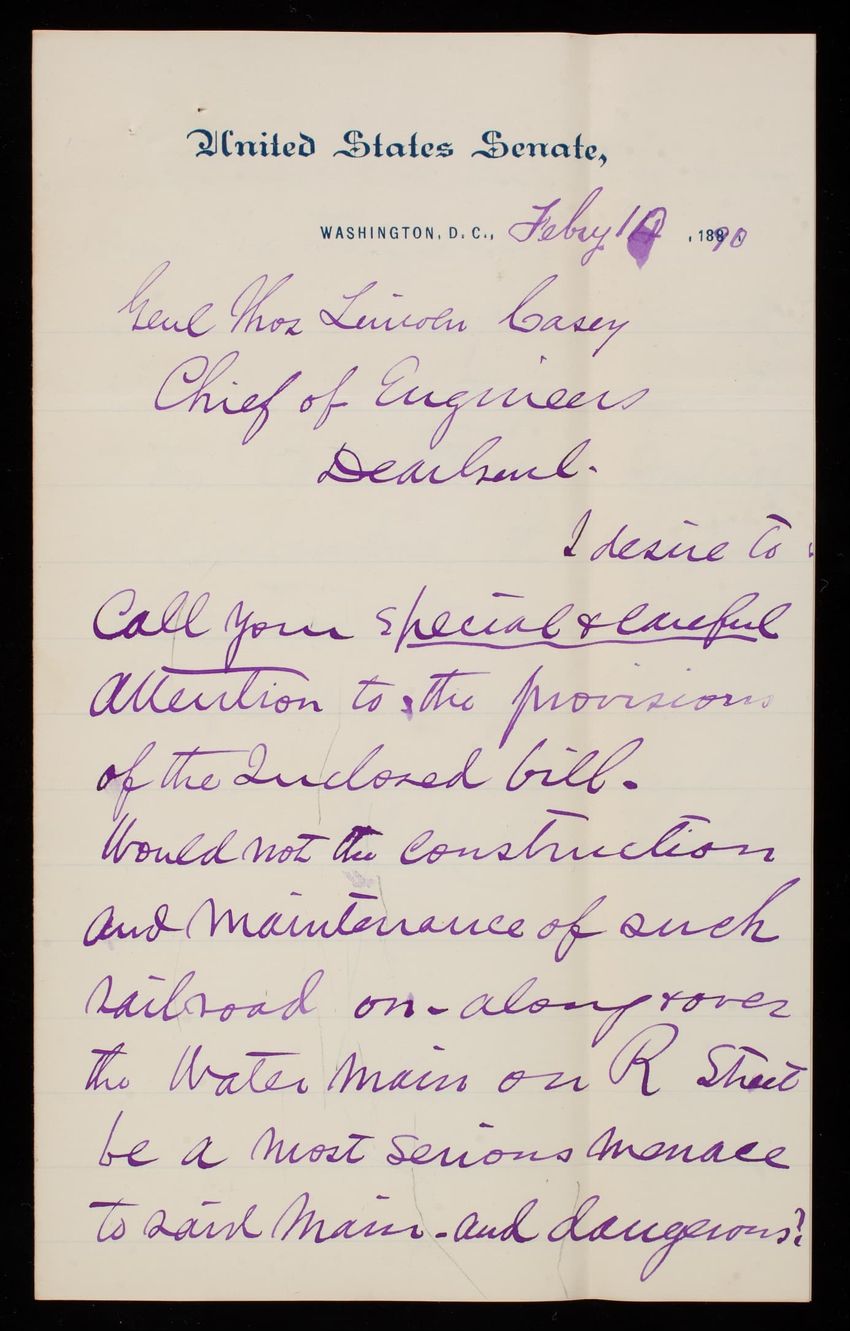 United States Senate,
WASHINGTON, D. C., Feby 1 , 1890
Genl Thos Lincoln Casey
Chief of Engineers
Dear Genl.
I desire to
Call your special & careful
attention to the provisions
of the Inclosed bill.
Would not the construction
and maintenance of such
railroad on - along & over
the Water Main on R Street
be a most serious menace
to said Main - and dangerous?